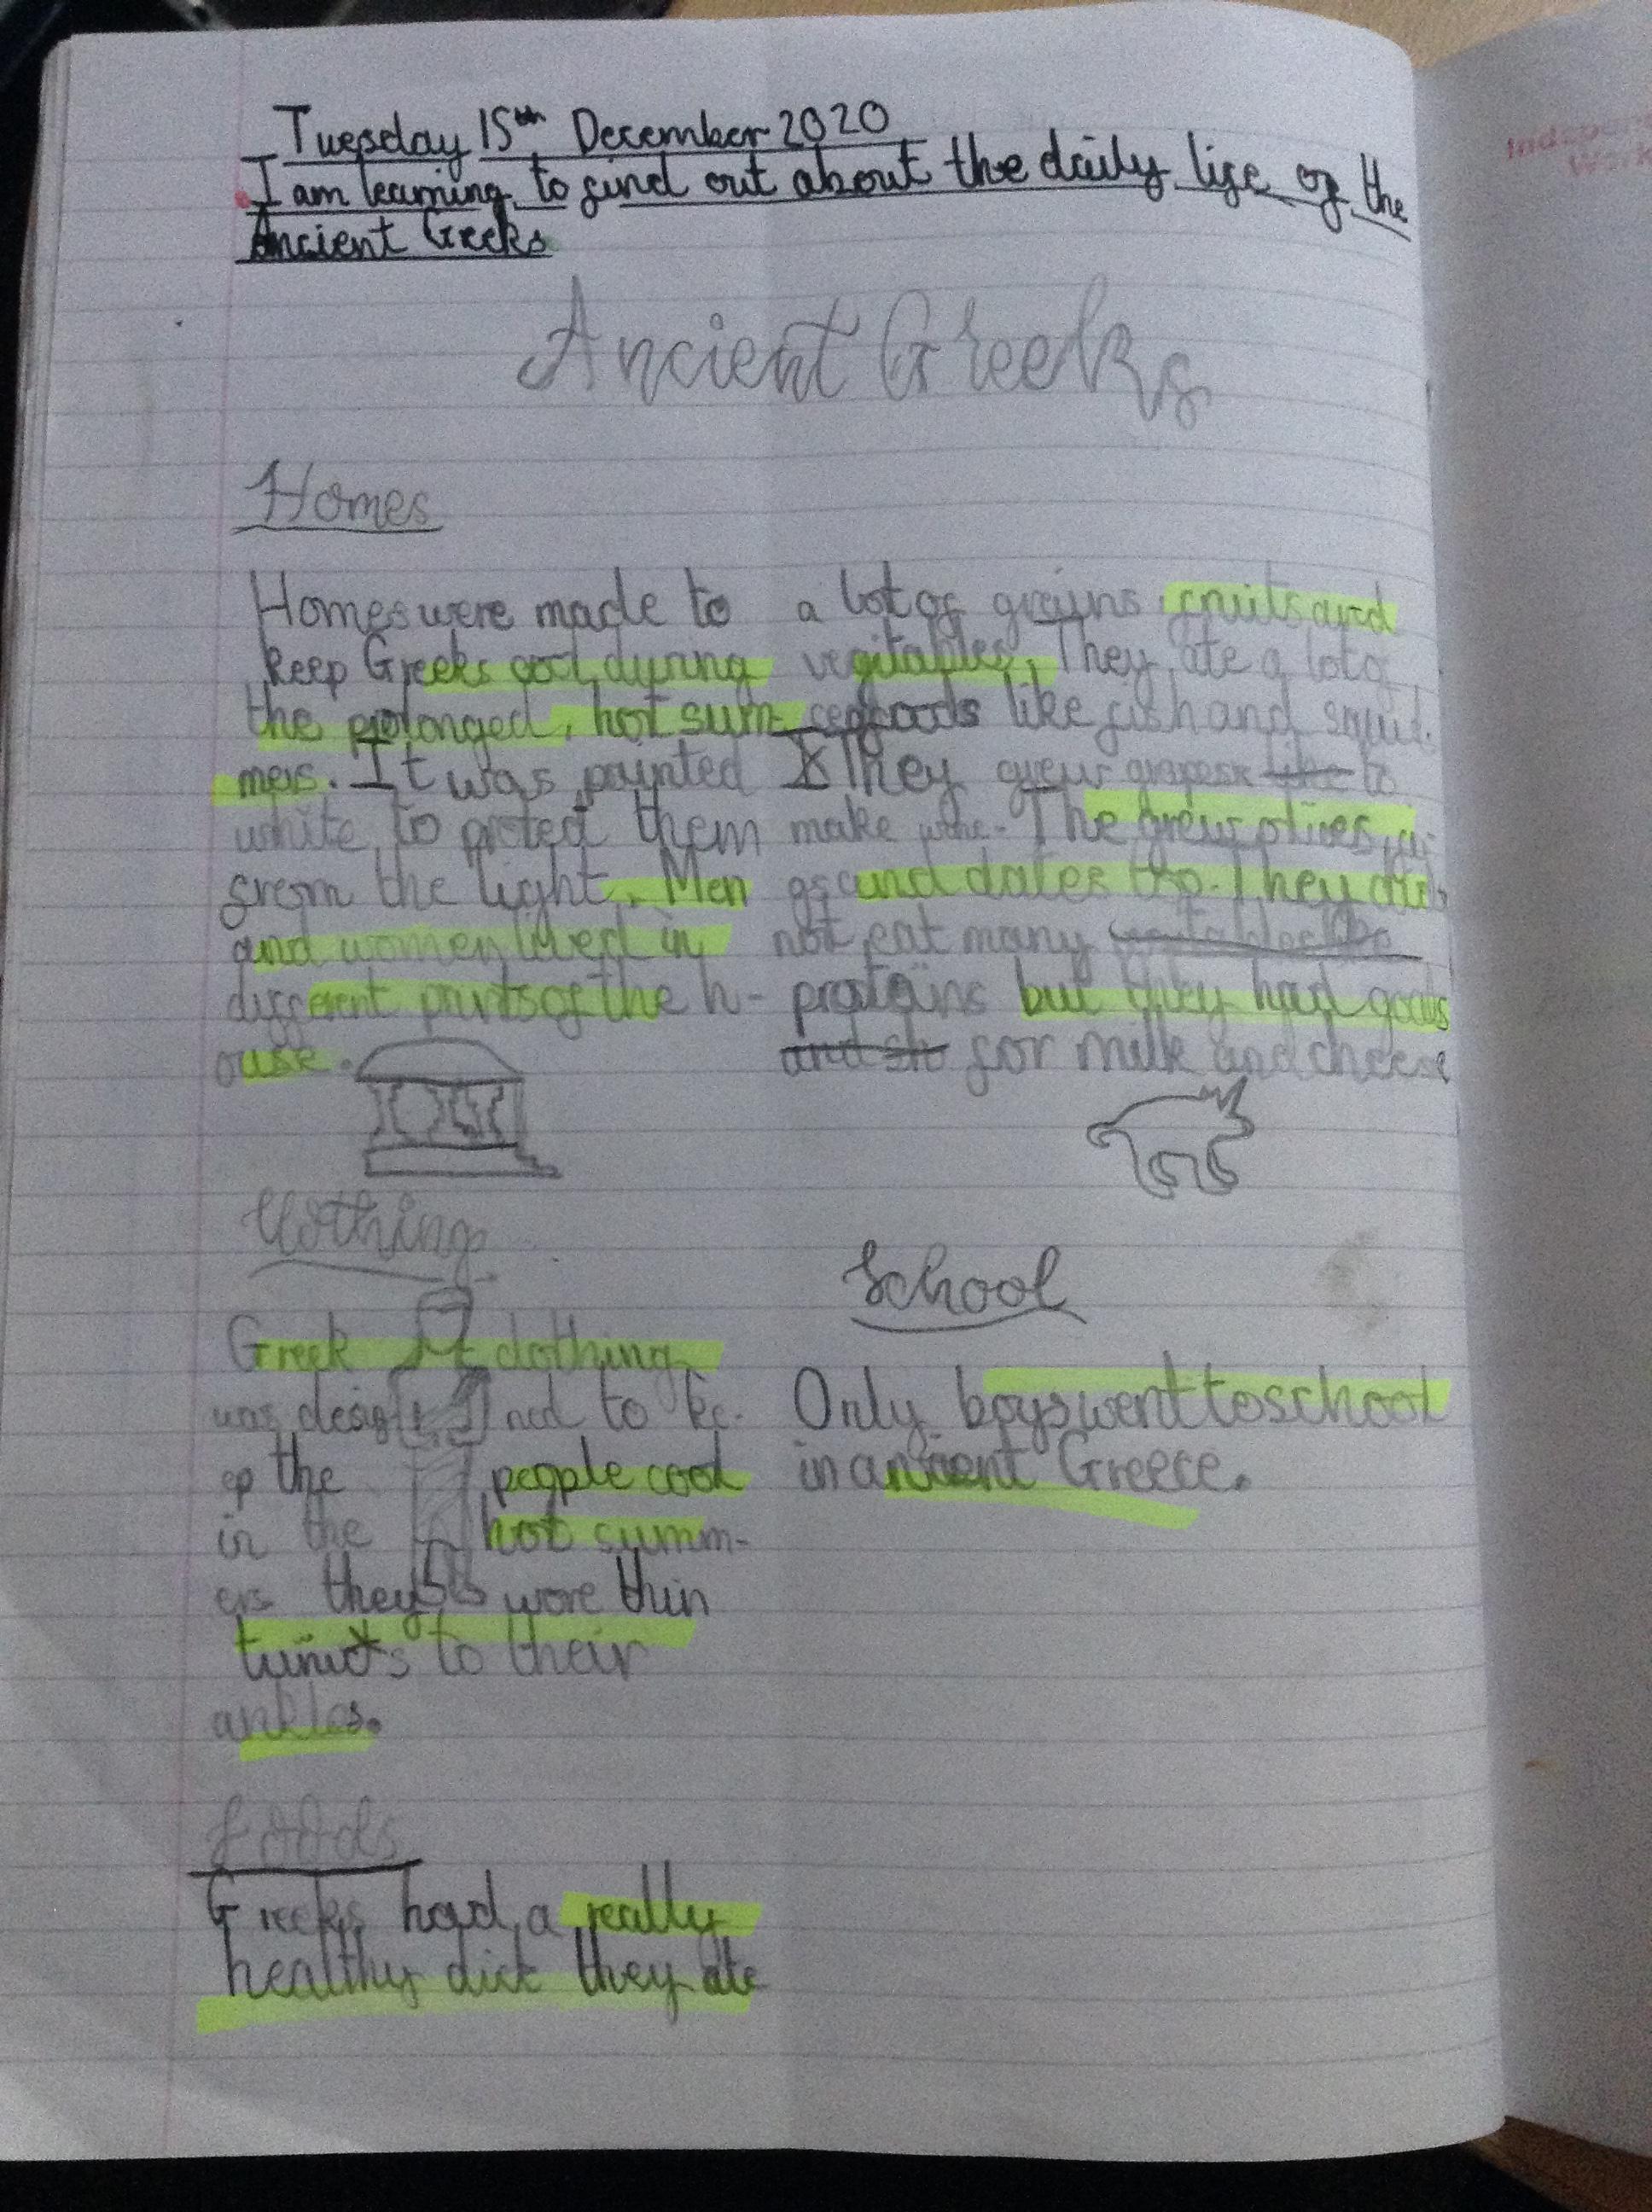 Tuesday 15th December 2020
I am learning to find out about the daily life of the
Ancient Greeks
Ancient Greeks
Homes
Homes were made to
keep Greeks cool during
the prolonged, hot sum-
mers. It was painted
white to protect them
from the light. Men
and women lived in
different parts of the h-
ouse.
Clothing
Greek clothing
was desig ned to ke-
ep the people cool
in the hot summ-
ers they wore thin
tunics to their
ankles.
foods
Greeks had a really
healthy diet they ate
a lot of grains fruits and
vegitables. They ate a lot of
seafoods like fish and squid.
They grew grapes to
make wine. The grew olives, fi-
gs and dates too. They did
not eat many
proteins but they had goats
for milk and cheese
School
Only boys went to school
in ancient Greece.
Work